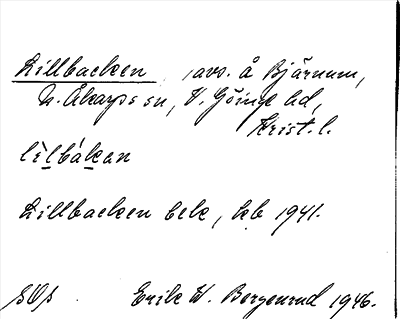 Lillbacken, avs. å Bjärnum,
N. Åkarps sn, V. Göinge hd,
Krist. l.
lìlbákan
Lillbacken bebe, keb 1941.
SOA Erik W. Bergenrud 1946.